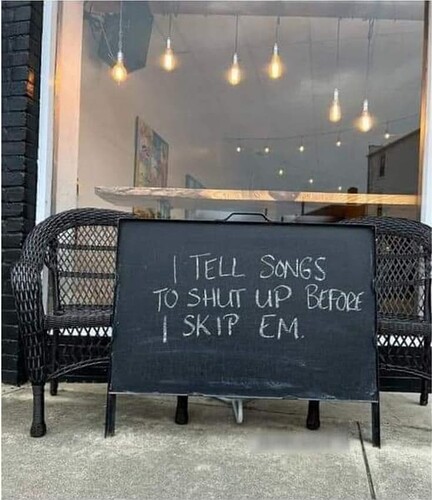 I TELL SONGS
TO SHUT UP BEFORE
I SKIP EM.